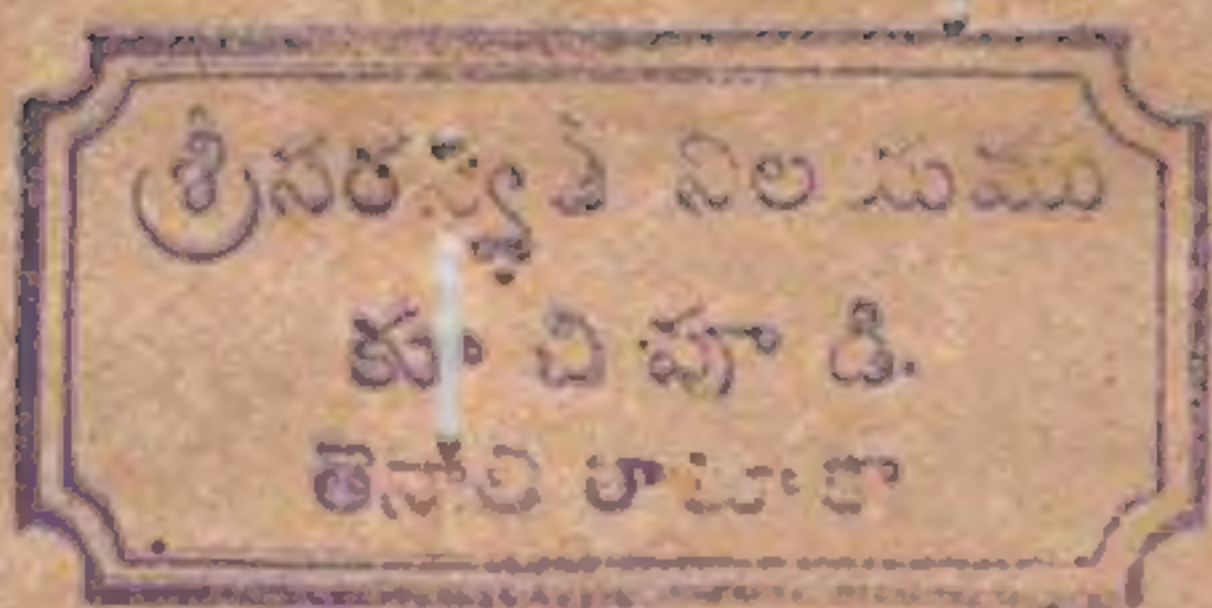 శ్రీసరస్వతీ నిలయము
కూచిపూడి.
తెనాలి తాలూకా